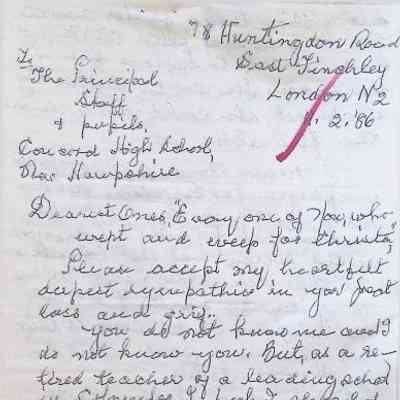 78 Huntingdon Road
East Finchley
London N2
2.'86
To
The Principal
Staff
& pupils,
Concord High School,
New Hampshire
Dearest Ones, "Every one of You, who"
wept and weep for Christa,
Please accept my heartfelt
deepest sympathies in your great
loss and grief.
You do not know me and I
do not know you. But, as a re-
tired teacher of a leading school
in